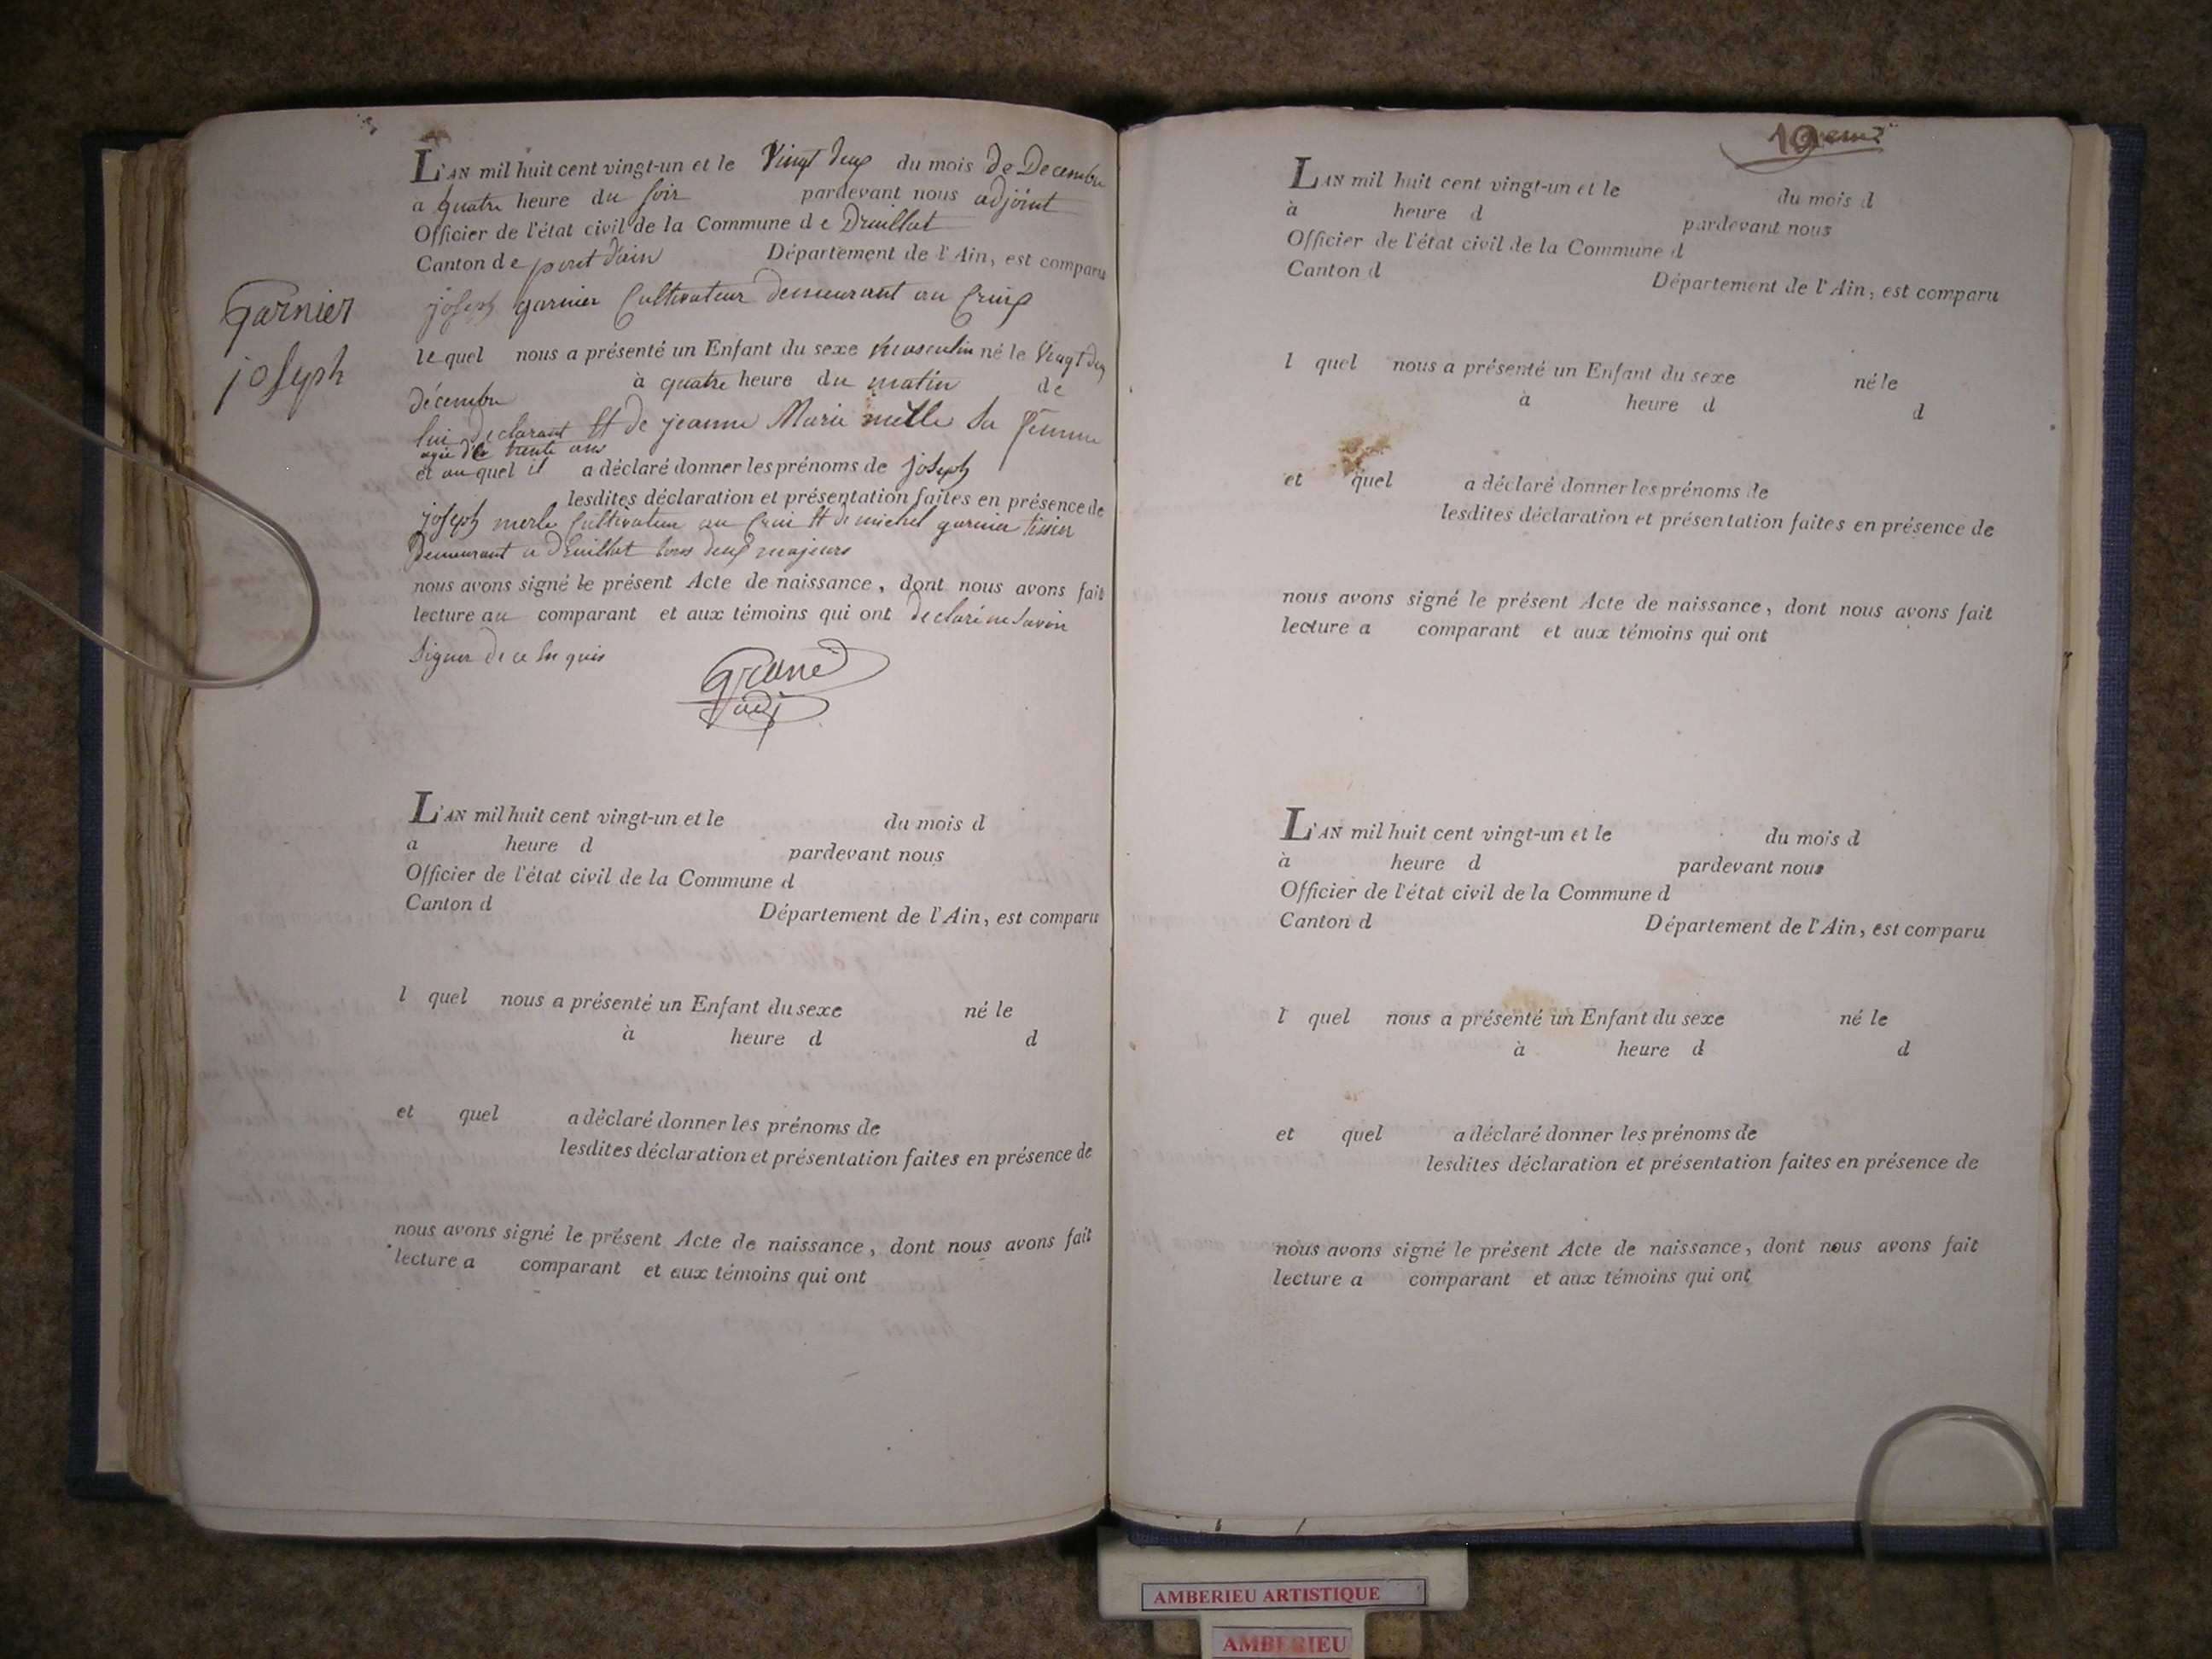 L'AN mil huit cent vingt-un et le Vingt deux du mois de Decembre
a quatre heure du soir pardevant nous adjoint
Officier de l'état civil de la Commune de Druillat
Canton de pont d'ain Département de l'Ain, est comparu
Garnier
joseph
joseph garnier Cultivateur demeurant au
lequel nous a présenté un Enfant du sexe masculin né le Vingt deux
décembre à quatre heure du matin de
lui declarant Et de jeanne Marie sa femme
agée de trente ans
et auquel il a déclaré donner les prénoms de joseph
lesdites déclaration et présentation faites en présence de
joseph merle Cultivateur au Et de michel garnier tissier
Demeurant a druillat tous deux majeurs
nous avons signé le présent Acte de naissance, dont nous avons fait
lecture au comparant et aux témoins qui ont declaré ne savoir
signer de ce
L'AN mil huit cent vingt-un et le du mois d
a heure d pardevant nous
Officier de l'état civil de la Commune d
Canton d Département de l'Ain, est comparu
l quel nous a présenté un Enfant du sexe né le
à heure d d
et quel a déclaré donner les prénoms de
lesdites déclaration et présentation faites en présence de
nous avons signé le présent Acte de naissance, dont nous avons fait
lecture a comparant et aux témoins qui ont
L'AN mil huit cent vingt-un et le du mois d
à heure d pardevant nous
Officier de l'état civil de la Commune d
Canton d Département de l'Ain, est comparu
l quel nous a présenté un Enfant du sexe né le
à heure d d
et quel a déclaré donner les prénoms de
lesdites déclaration et présentation faites en présence de
nous avons signé le présent Acte de naissance, dont nous avons fait
lecture a comparant et aux témoins qui ont
L'AN mil huit cent vingt-un et le du mois d
à heure d pardevant nous
Officier de l'état civil de la Commune d
Canton d Département de l'Ain, est comparu
l quel nous a présenté un Enfant du sexe né le
à heure d d
et quel a déclaré donner les prénoms de
lesdites déclaration et présentation faites en présence de
nous avons signé le présent Acte de naissance, dont nous avons fait
lecture a comparant et aux témoins qui ont
AMBERIEU ARTISTIQUE
AMBERIEU